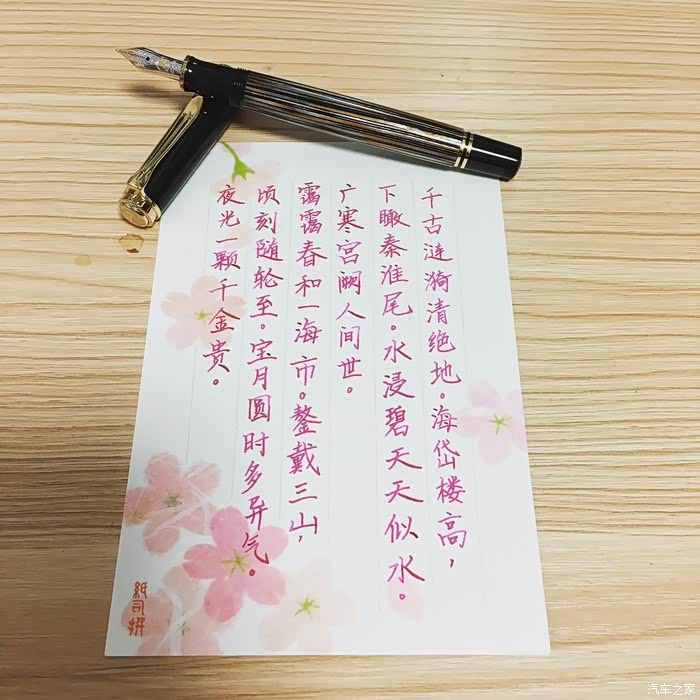 千古涟漪清绝地。海岱楼高，
下瞰秦淮尾。水浸碧天天似水。
广寒宫阙人间世。
霭霭春和一海市。鳌戴三山，
顷刻随轮至。宝月圆时多异气。
夜光一颗千金贵。
汽车之家